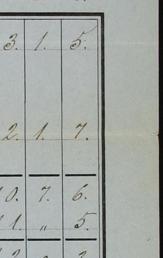 3. 1. 5.
2. 1. 7.
0. 7. 6.
1. " 5.